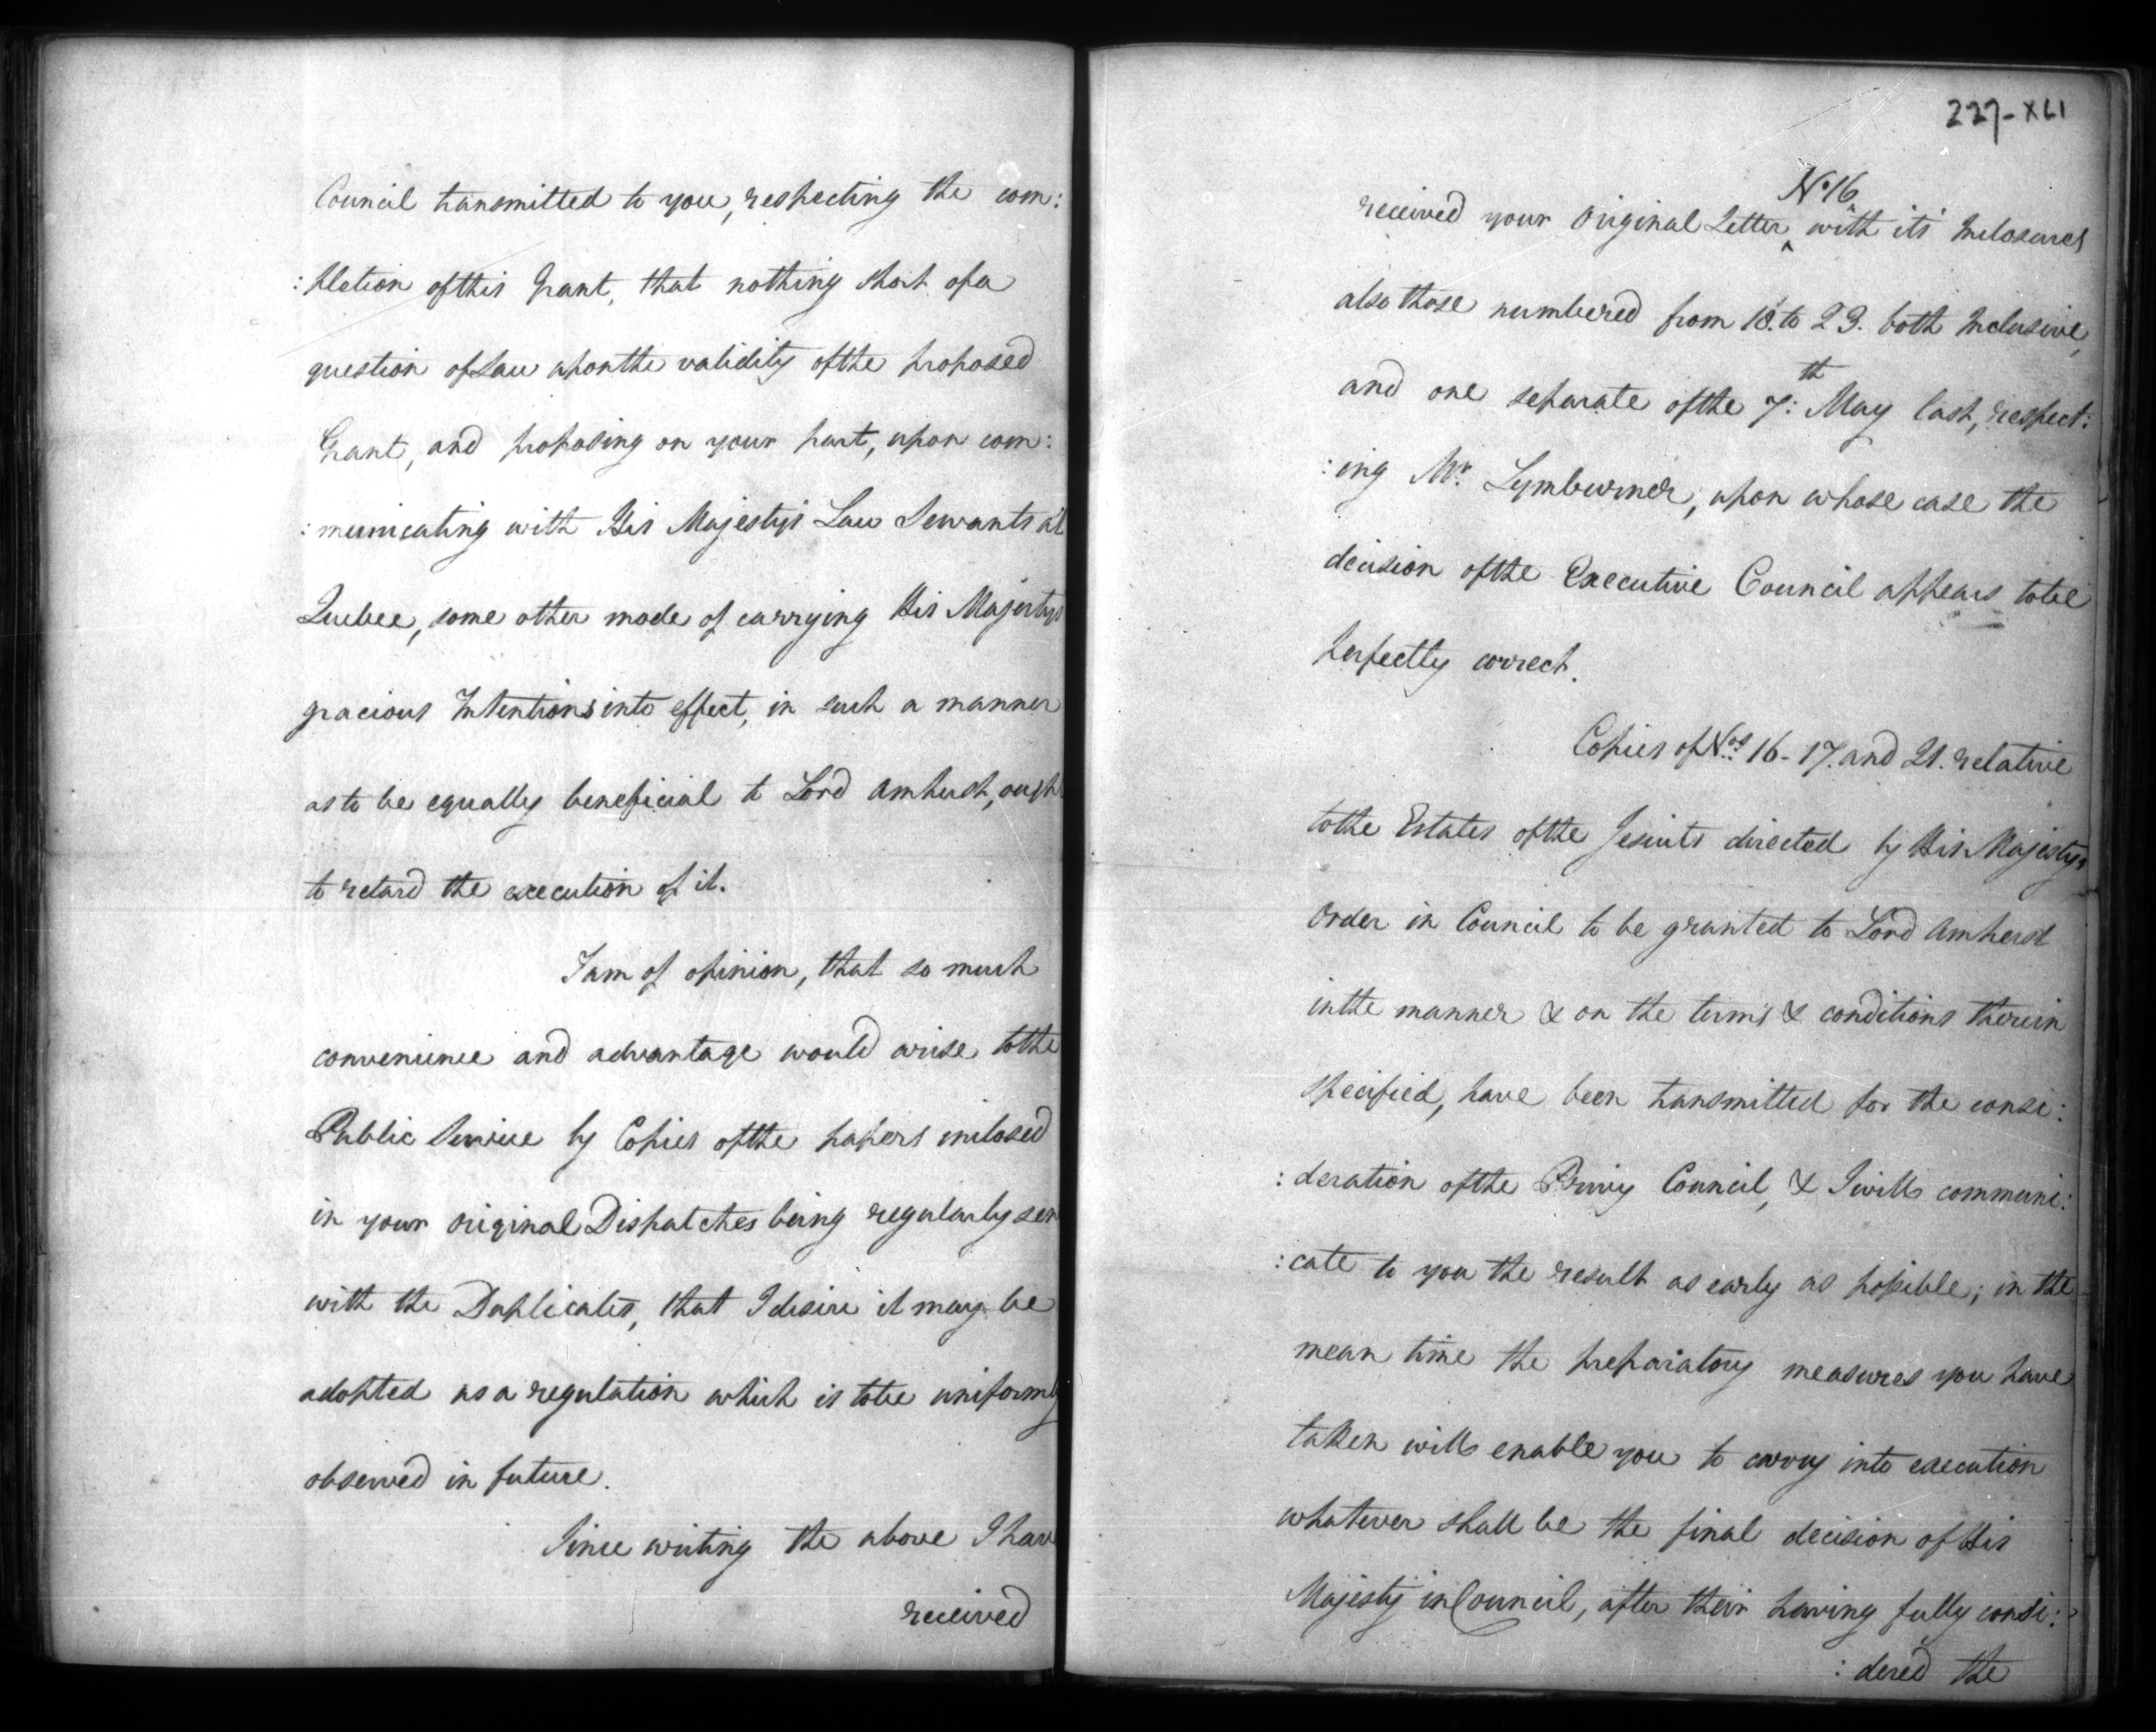 Council transmitted to you, respecting the com:
:pletion of this Grant, that nothing short of a
question of Law upon the validity of the proposed
Grant, and proposing on your part, upon com:
:municating with His Majesty's Law Servants at
Quebec, some other mode of carrying His Majestys
gracious Intentions into effect, in such a manner
as to be equally beneficial to Lord Amherst, ought
to retard the execution of it.
I am of opinion, that so much
convenience and advantage would arise to the
Public Service by Copies of the papers inclosed
in your original Dispatches being regularly sen
with the Duplicates, that I desire it may be
adopted as a regulation which is to be uniformly
observed in future.
Since writing the above I have
received
227-XLI
No. 16
received your Original Letter ^ with its Inclosures
also those numbered from 18. to 23. both Inclusive,
and one separate of the 7:th May last, respect:
:ing Mr. Lymburner, upon whose case the
decision of the Executive Council appears to be
perfectly correct.
Copies of Nos. 16 - 17. and 21. relative
to the Estates of the Jesuits directed by His Majestys
Order in Council to be granted to Lord Amherst
in the manner & on the terms & conditions therein
specified, have been transmitted for the consi:
:deration of the Privy Council, & I will communi:
:cate to you the result as early as possible; in the
mean time the preparatory measures you have
taken will enable you to carry into execution
whatever shall be the final decision of His
Majesty in Council, after their having fully consi:
:dered the